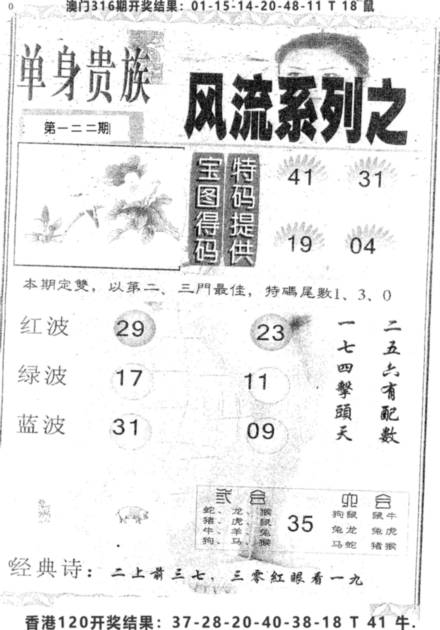 澳门316期开奖结果：01-15-14-20-48-11 T 18 鼠
单身贵族
风流系列之
第一二二期
宝图得码
特码提供
41 31
19 04
本期定雙，以第二、三門最佳，特碼尾數1、3、0
红波 29 23
绿波 17 11
蓝波 31 09
二五六有配數
一七四擊頭天
弍合
蛇、龙、猴
猪、虎、鼠
牛、羊、兔
狗、马、猪
35
六合
狗鼠 鼠牛
兔龙 兔虎
马蛇 猪猴
经典诗：二上前三七，三零紅眼看一九
香港120开奖结果：37-28-20-40-38-18 T 41 牛.